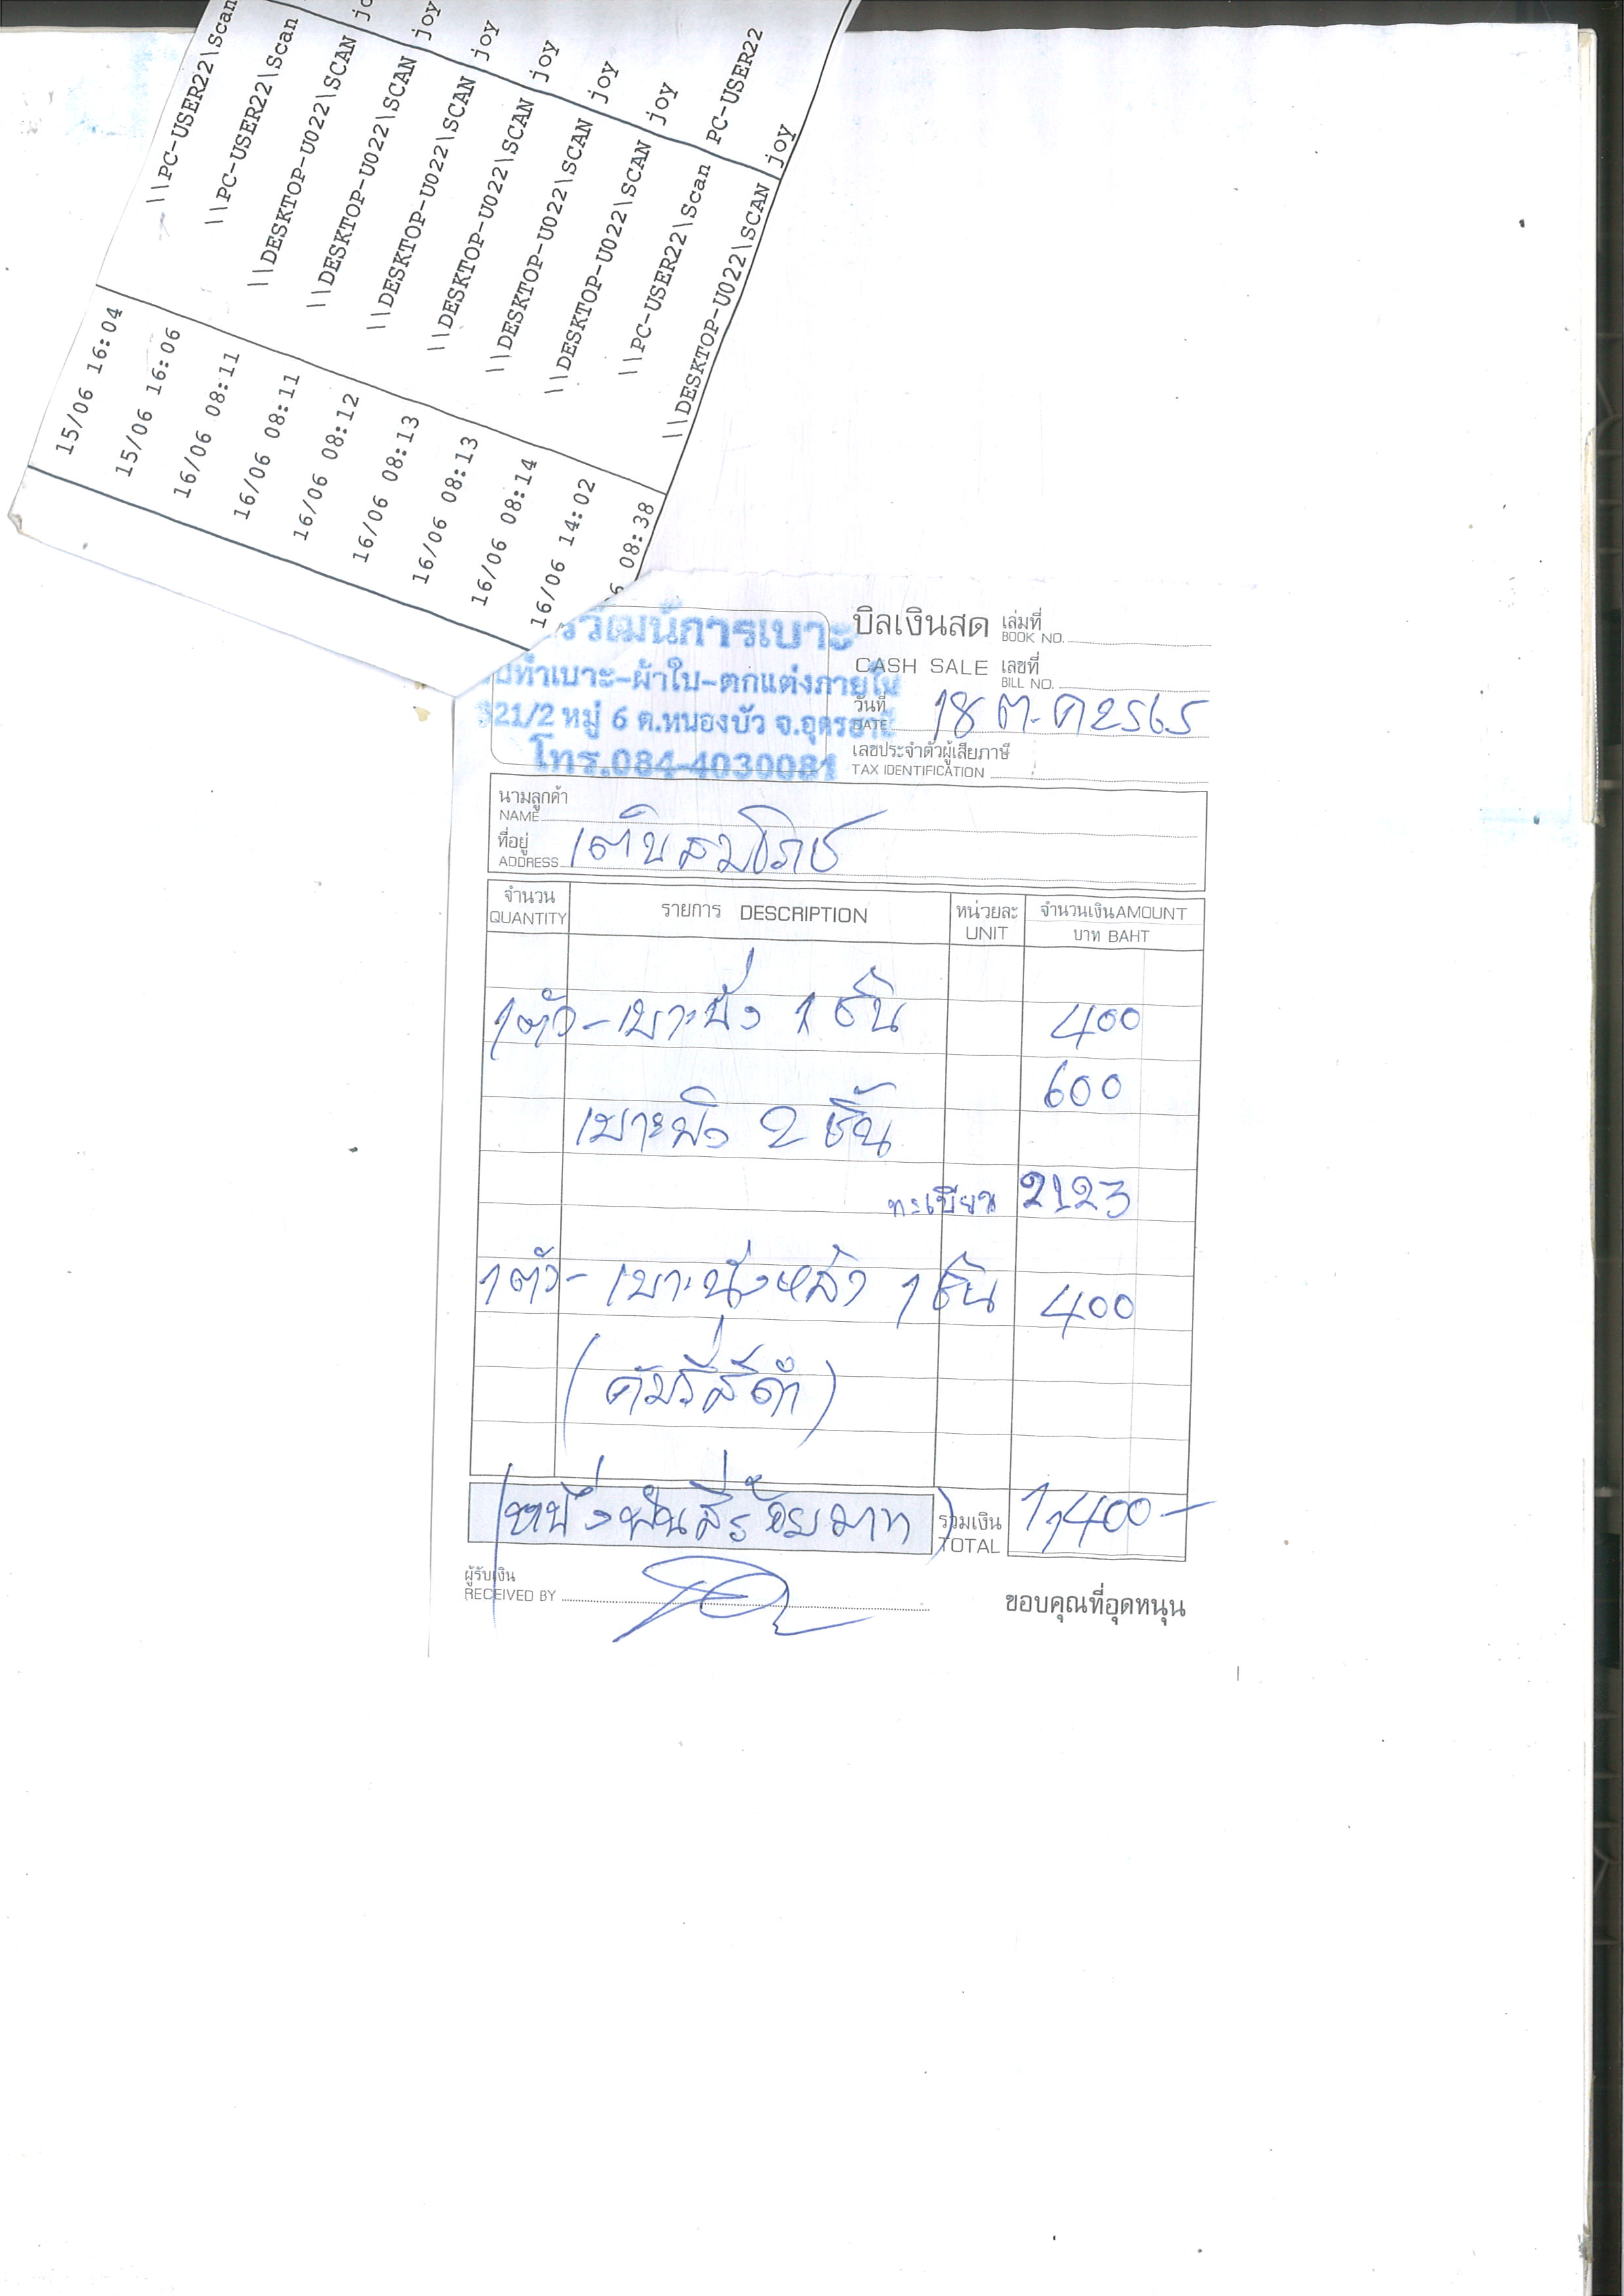 \\PC-USER22\Scan
\\PC-USER22\Scan
\\DESKTOP-U022\SCAN
\\DESKTOP-U022\SCAN joy
\\DESKTOP-U022\SCAN joy
\\DESKTOP-U022\SCAN joy
\\DESKTOP-U022\SCAN joy
\\DESKTOP-U022\SCAN joy
\\PC-USER22\Scan PC-USER22
\\DESKTOP-U022\SCAN joy
15/06 16:04
15/06 16:06
16/06 08:11
16/06 08:11
16/06 08:12
16/06 08:13
16/06 08:13
16/06 08:14
16/06 14:02
08:38
บิลเงินสด เล่มที่
BOOK NO.
CASH SALE เลขที่
BILL NO.
วันที่
DATE 18 ต.ค 2565
เลขประจำตัวผู้เสียภาษี
TAX IDENTIFICATION
วัฒน์การเบาะ
ทำเบาะ-ผ้าใบ-ตกแต่งภายใน
321/2 หมู่ 6 ต.หนองบัว จ.อุดรธานี
โทร.084-4030081
นามลูกค้า
NAME
ที่อยู่
ADDRESS
จำนวน รายการ DESCRIPTION หน่วยละ จำนวนเงิน AMOUNT
QUANTITY UNIT บาท BAHT
1ตัว - เบาะนั่ง 1 ชิ้น 400
600
เบาะพิง 2 ชิ้น
ทะเบียน 2123
1ตัว - เบาะนั่งหลัง 1 ชิ้น 400
(คัมรี่สีดำ)
(หนึ่งพันสี่ร้อยบาท) รวมเงิน 1,400-
TOTAL
ผู้รับเงิน
RECEIVED BY
ขอบคุณที่อุดหนุน